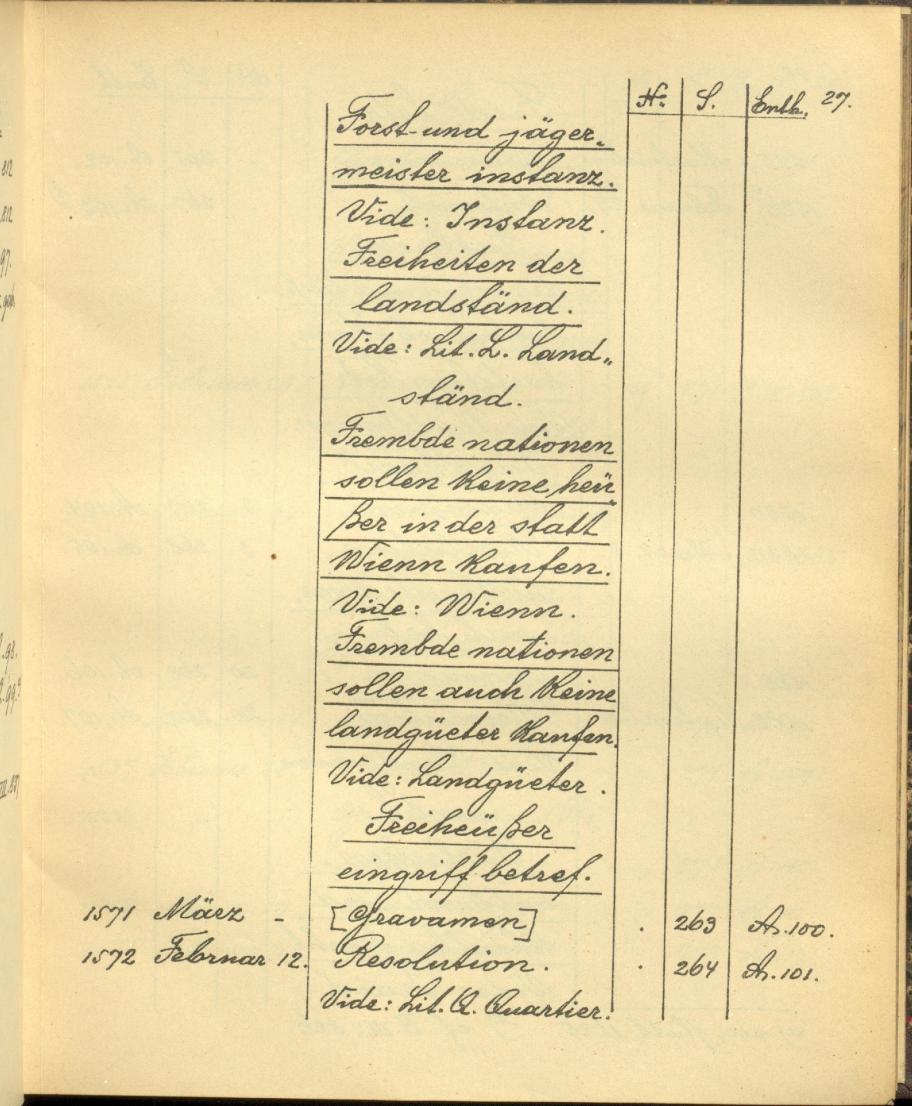 N: S. Entb. 27.
Forst-und jäger„
meister instanz.
Vide: Instanz.
Freiheiten der
landständ.
Vide: Lit. L. Land„
ständ.
Frembde nationen
sollen keine heü„
ßer in der statt
Wienn kaufen.
Vide: Wienn.
Frembde nationen
sollen auch keine
landgüeter kaufen.
Vide: Landgüeter.
Freiheüßer
eingriff betref.
1571 März - [Gravamen] . 263 A. 100.
1572 Februar 12. Resolution. . 264 A. 101.
Vide: Lit. Q. Quartier.